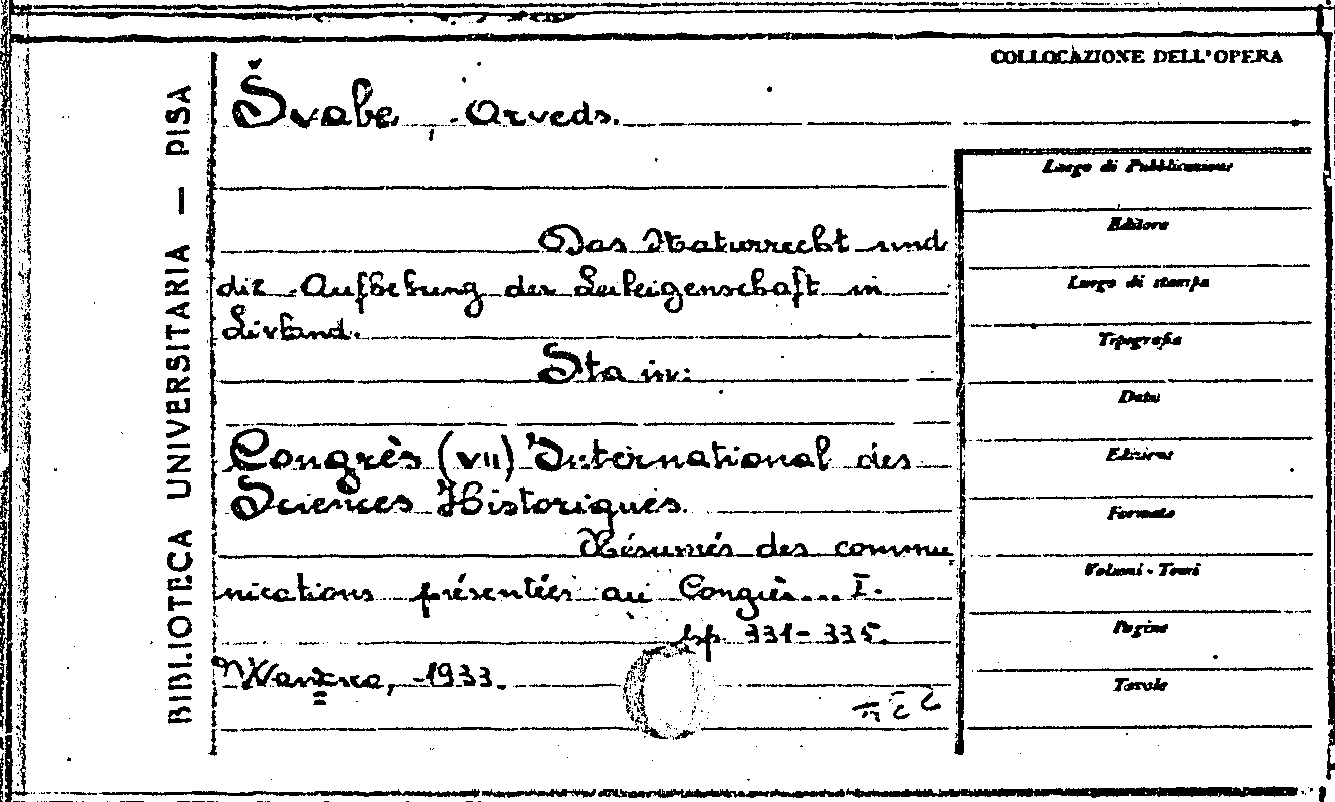 COLLOCAZIONE DELL'OPERA
BIBLIOTECA UNIVERSITARIA — PISA
Švabe, Arveds.
Das Naturrecht und
die Aufhebung der Leibeigenschaft in
Livland.
Sta in:
Congrès (VII) International des
Sciences Historiques.
Résumés des commu
nications présentées au Congrès... I.
pp. 331-335.
1933.
Luogo di Pubblicazione
Editore
Luogo di stampa
Tipografia
Data
Edizione
Formato
Volumi - Tomi
Pagine
Tavole